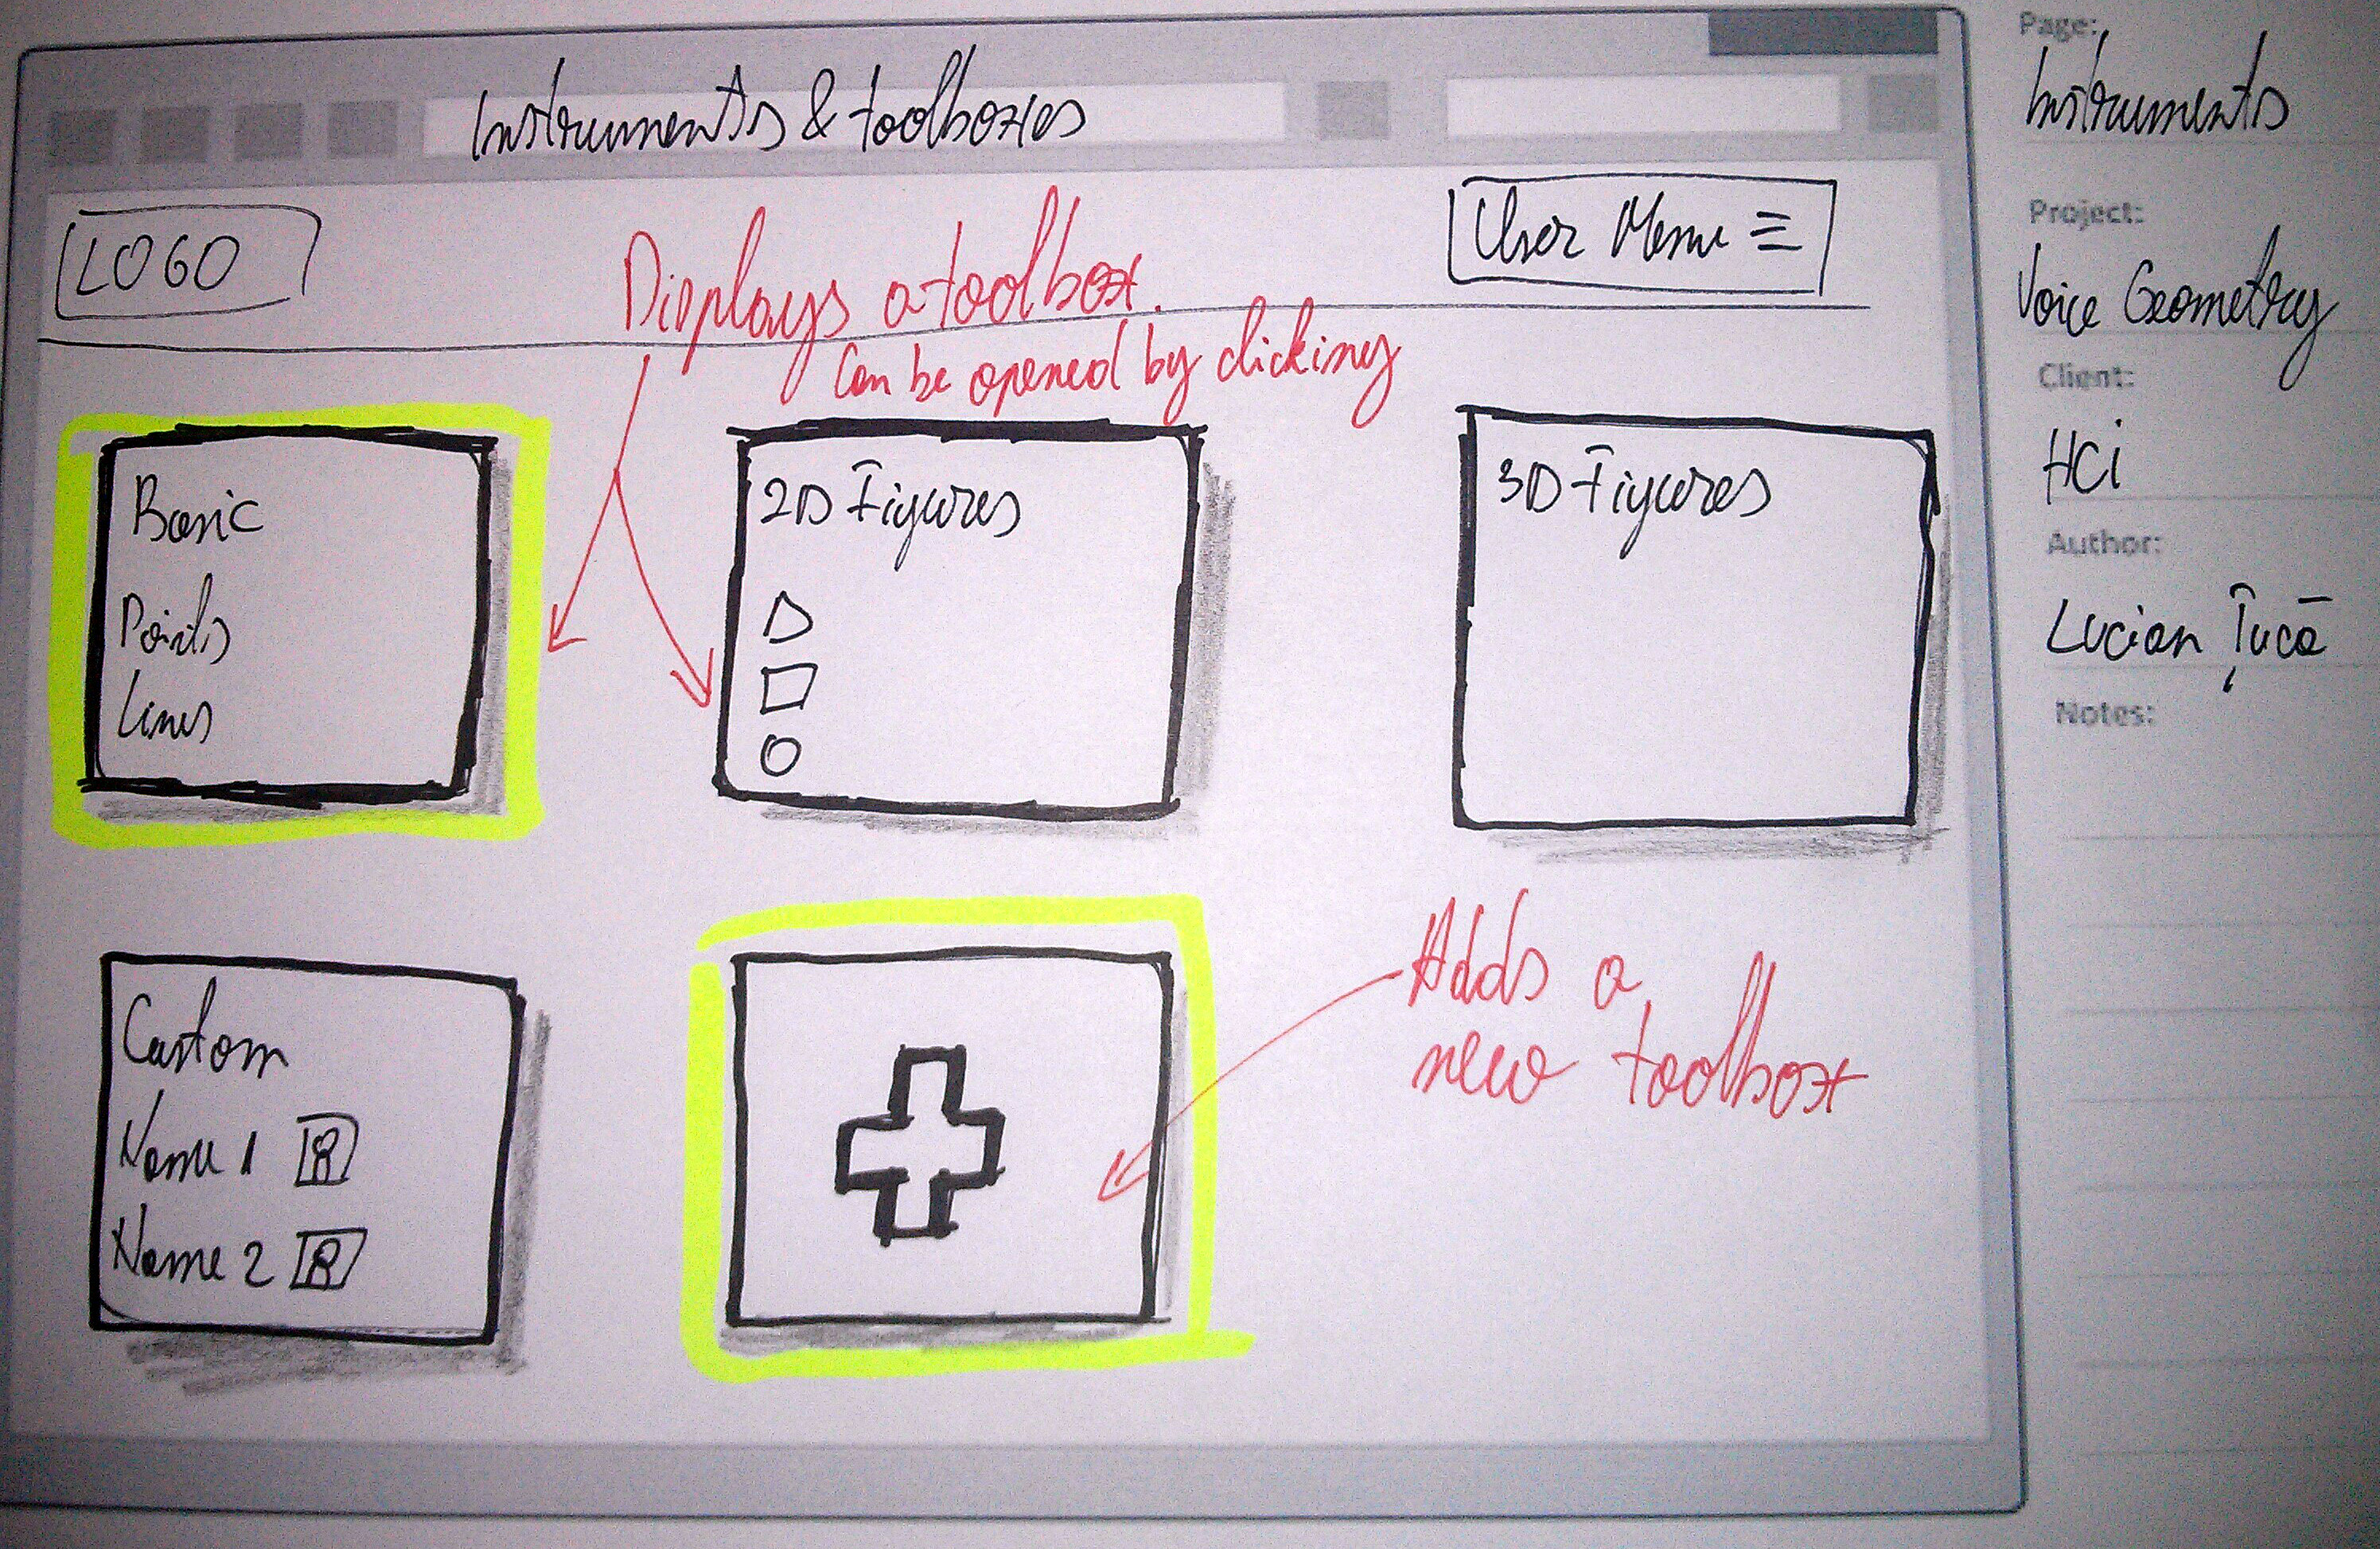 Instruments & toolboxes
LOGO
User Menu
Displays a toolbox.
Can be opened by clicking
Basic
Points
Lines
2D Figures
3D Figures
Custom
Name 1
Name 2
Adds a
new toolbox
Page:
Instruments
Project:
Voice Geometry
Client:
HCi
Author:
Lucian Țucă
Notes: